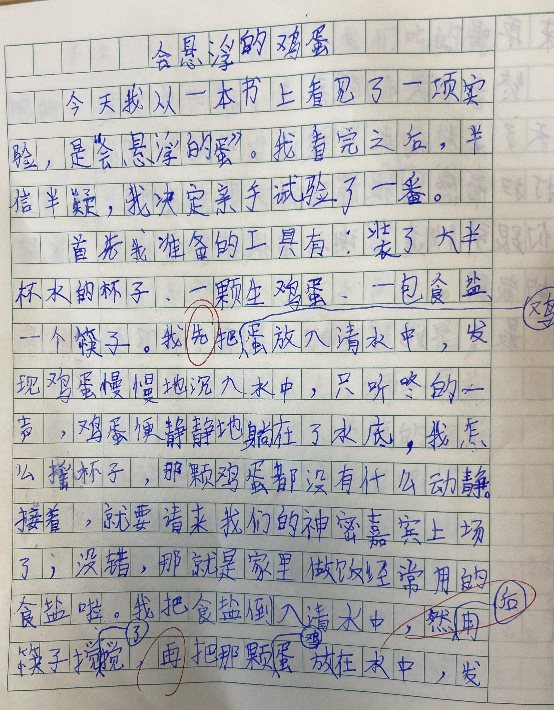 会悬浮的鸡蛋
今天我从一本书上看见了一项实
验，是“会悬浮的蛋”。我看完之后，半
信半疑，我决定亲手试验了一番。
首先我准备的工具有：装了大半
杯水的杯子、一颗生鸡蛋、一包食盐
一个筷子。我先把蛋放入清水中，发
鸡
现鸡蛋慢慢地沉入水中，只听咚的一
声，鸡蛋便静静地躺在了水底，我怎
么摇杯子，那颗鸡蛋都没有什么动静。
接着，就要请来我们的神密嘉宾上场
了；没错，那就是家里做饭经常用的
食盐啦。我把食盐倒入清水中，然再
后
筷子搅搅，再把那颗蛋放在水中，发
了
鸡